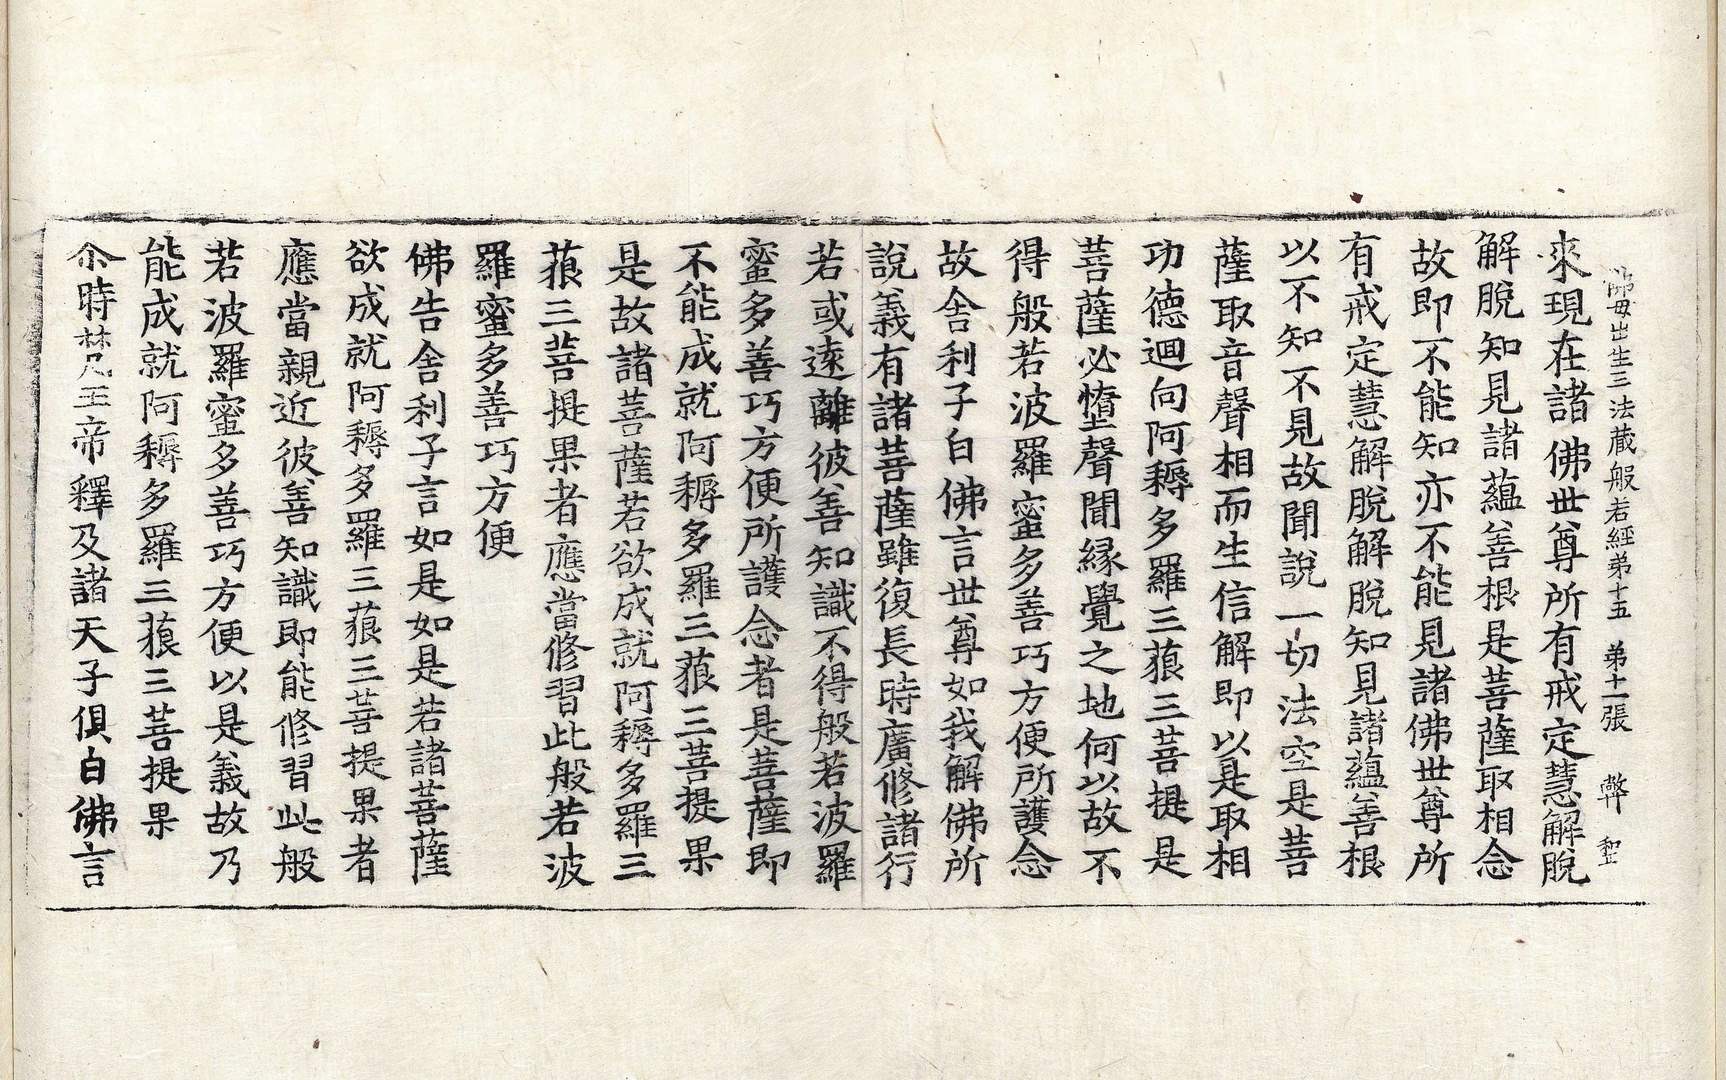 佛母出生三法藏般若經弟十五 弟十一張
來現在諸佛世尊所有戒定慧解脫
解脫知見諸蘊善根是菩薩取相念
故即不能知亦不能見諸佛世尊所
有戒定慧解脫解脫知見諸蘊善根
以不知不見故聞說一切法空是菩
薩取音聲相而生信解即以是取相
功德迴向阿耨多羅三藐三菩提是
菩薩必墮聲聞緣覺之地何以故不
得般若波羅蜜多善巧方便所護念
故舍利子白佛言世尊如我解佛所
說義有諸菩薩雖復長時廣修諸行
若或遠離彼善知識不得般若波羅
蜜多善巧方便所護念者是菩薩即
不能成就阿耨多羅三藐三菩提果
是故諸菩薩若欲成就阿耨多羅三
藐三菩提果者應當修習此般若波
羅蜜多善巧方便
佛告舍利子言如是如是若諸菩薩
欲成就阿耨多羅三藐三菩提果者
應當親近彼善知識即能修習此般
若波羅蜜多善巧方便以是義故乃
能成就阿耨多羅三藐三菩提果
尒時梵王帝釋及諸天子俱白佛言